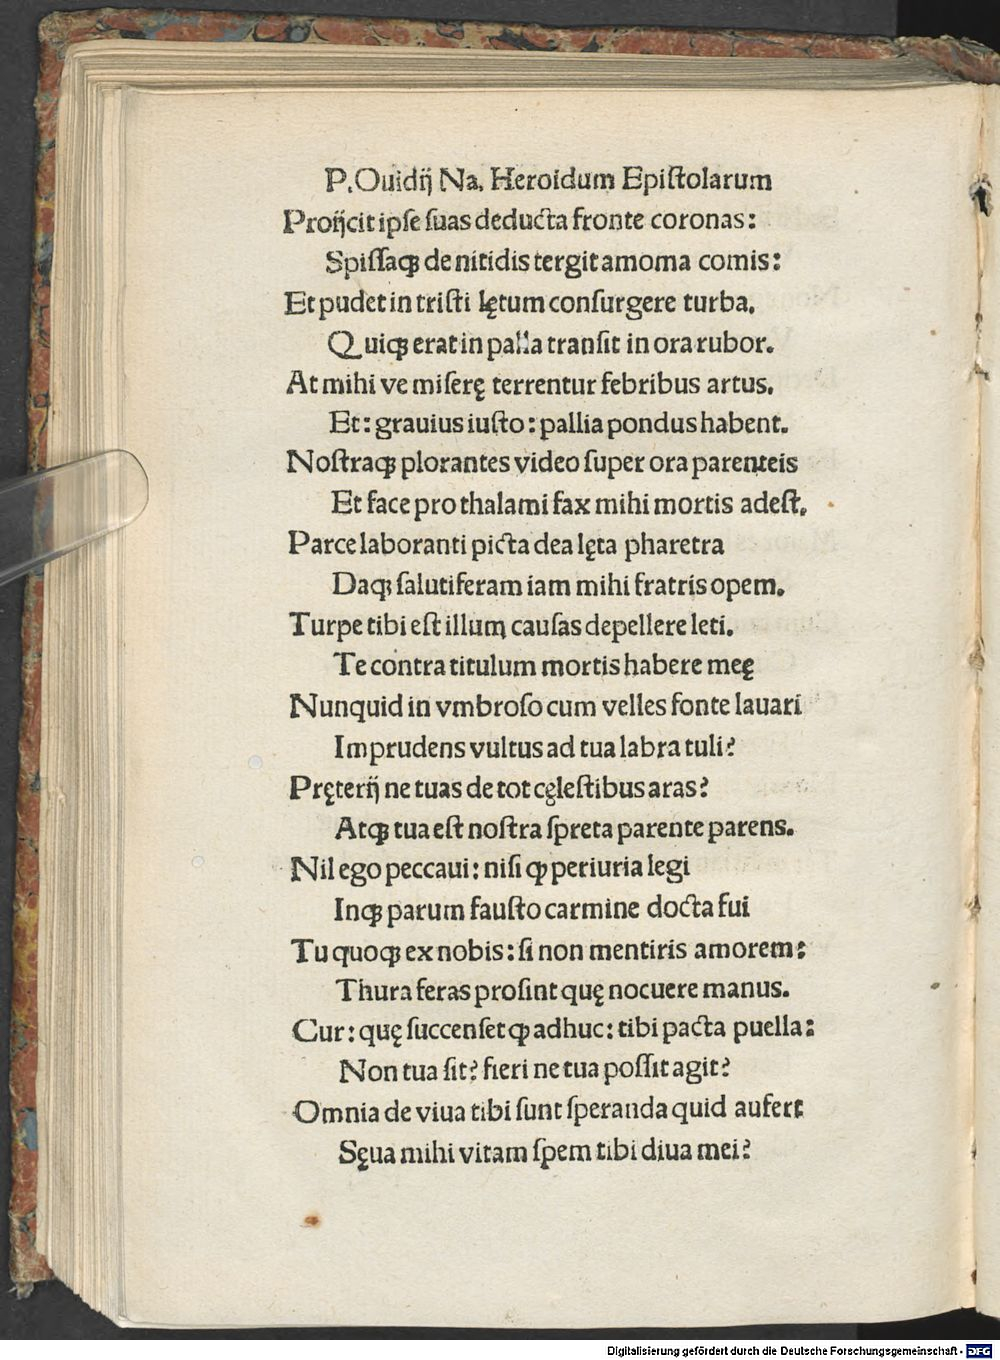 P. Ouidij Na. Heroidum Epiſtolarum
Proijcit ipſe ſuas deducta fronte coronas:
Spiſſaqꝫ de nitidis tergit amoma comis:
Et pudet in triſti lętum conſurgere turba.
Quiqꝫ erat in palla tranſit in ora rubor.
At mihi ve miſerę terrentur febribus artus.
Et: grauius iuſto: pallia pondus habent.
Noſtraqꝫ plorantes video ſuper ora parenteis
Et face pro thalami fax mihi mortis adeſt.
Parce laboranti picta dea lęta pharetra
Daqꝫ ſalutiferam iam mihi fratris opem.
Turpe tibi eſt illum cauſas depellere leti.
Te contra titulum mortis habere meę
Nunquid in vmbroſo cum velles fonte lauari
Imprudens vultus ad tua labra tuli?
Pręterij ne tuas de tot cęleſtibus aras?
Atqꝫ tua eſt noſtra ſpreta parente parens.
Nil ego peccaui: niſi ꝙ periuria legi
Inqꝫ parum fauſto carmine docta fui
Tu quoqꝫ ex nobis: ſi non mentiris amorem:
Thura feras proſint quę nocuere manus.
Cur: quę ſuccenſet ꝙ adhuc: tibi pacta puella:
Non tua ſit? fieri ne tua poſſit agit?
Omnia de viua tibi ſunt ſperanda quid aufert
Sęua mihi vitam ſpem tibi diua mei?
Digitalisierung gefördert durch die Deutsche Forschungsgemeinschaft - DFG